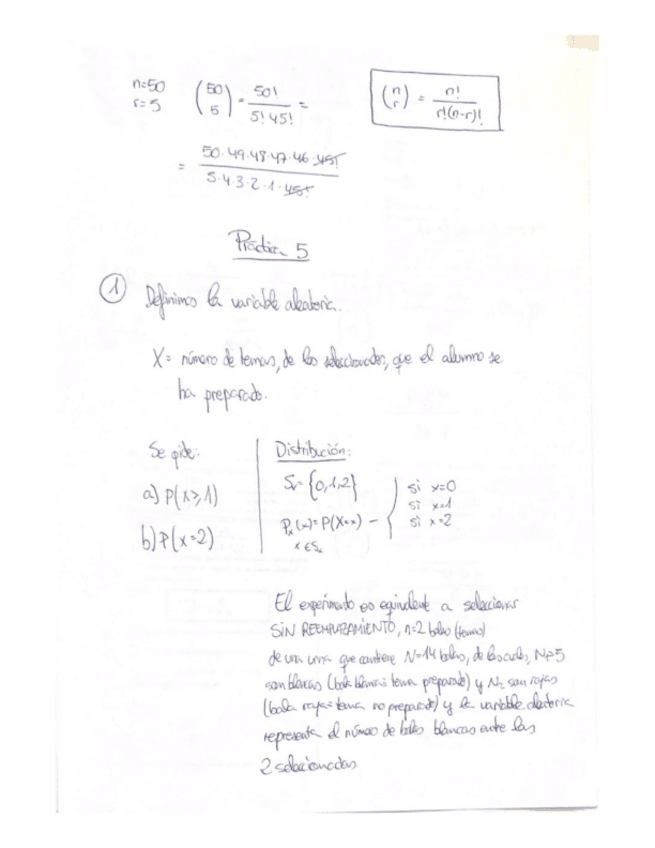 n=50
r=5
(50 5) = 50! / 5! 45! =
(n r) = n! / r!(n-r)!
= 50·49·48·47·46·45! / 5·4·3·2·1·45!
Práctica 5
1 Definimos la variable aleatoria.
X= número de temas, de los seleccionados, que el alumno se
ha preparado.
Se pide:
a) P(X≥1)
b) P(X=2)
Distribución:
Sx= {0,1,2}
Px(x)=P(X=x) - { si x=0
si x=1
si x=2
x∈Sx
El experimento es equivalente a seleccionar
SIN REEMPLAZAMIENTO, n=2 bolas (temas)
de una urna que contiene N=14 bolas, de las cuales, N1=5
son blancas (bola blanca = tema preparado) y N2 son rojas
(bola roja = tema no preparado) y la variable aleatoria
representa el número de bolas blancas entre las
2 seleccionadas